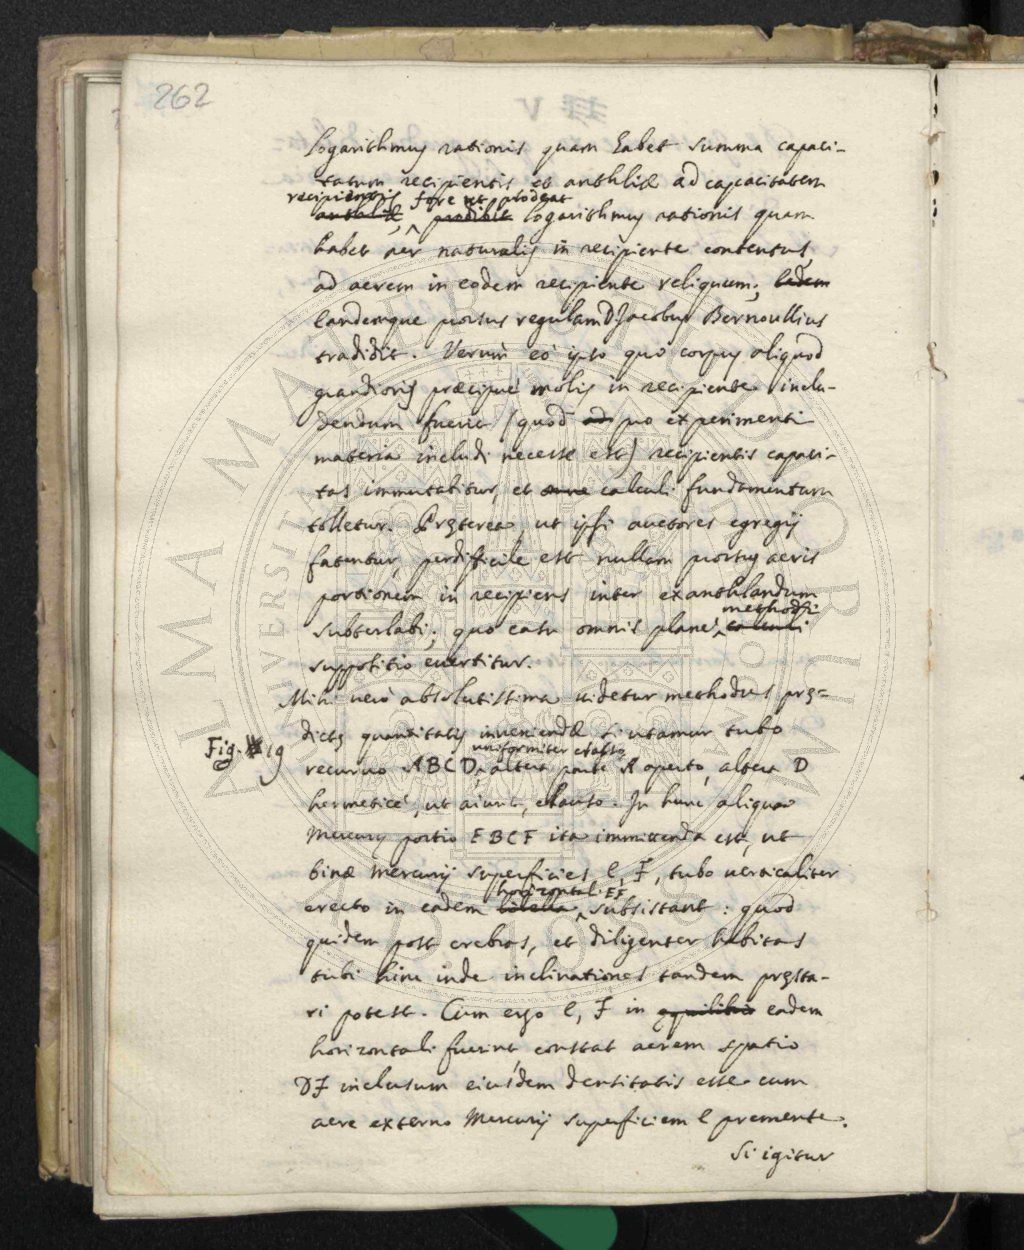 262
Logarithmus rationis quam habet summa capaci-
tatum recipientis et anthliæ ad capacitatem
recipientis fore ut prodeat
anthliæ, prodibit logarithmus rationis quam
habet aer naturalis in recipiente contentus,
ad aerem in eodem recipiente reliquum;
eandemque prorsus regulam D. Jacobus Bernoullius
tradidit. Verum eo ipso quo corpus aliquod
grandioris præcipue molis in recipiente inclu-
dendum fuerit (quod ad pro experimenti
materia includi necesse est) recipientis capaci-
tas immutabitur, et calculi fundamentum
tolletur. Pręterea, ut ipsi auctores egregij
fatentur, perdifficile est nullam prorsus aeris
portionem in recipiens inter exanthlandum
methodi
subterlabi; quo casu omnis plane, calculi
suppositio evertitur.
Mihi vero absolutissima videtur methodus prę-
dictę quantitatis inveniendæ si utamur tubo
uniformiter crasso
Fig. 19
recurvo ABCD, altera parte A aperto, altera D
hermetice, ut aiunt, clauso. In hunc aliqua
Mercurij portio EBCF ita immittenda est, ut
binæ mercurij superficies E, F, tubo verticaliter
horizontali EF
erecto in eadem libella, subsistant: quod
quidem post crebras, et diligenter habitas
tubi hinc inde inclinationes tandem pręsta-
ri potest. Cum ergo E, F in ęquilibrio eadem
horizontali fuerint, constat aerem spatio
DF inclusum eiusdem densitatis esse cum
aere externo Mercurij superficiem E premente.
Si igitur
ALMA MATER STUDIORUM
UNIVERSITÀ DI BOLOGNA